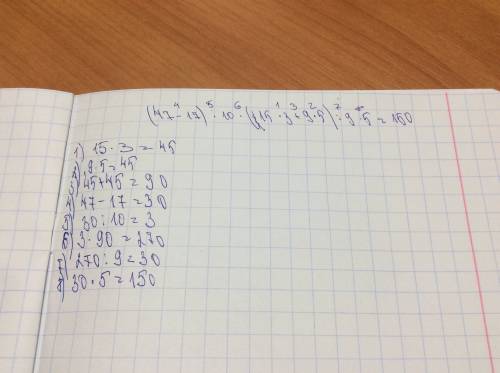 (47 - 17) : 10 · (15 · 3 + 9 · 5) : 9 · 5 = 150
1) 15 · 3 = 45
2) 9 · 5 = 45
3) 45 + 45 = 90
4) 47 - 17 = 30
5) 30 : 10 = 3
6) 3 · 90 = 270
7) 270 : 9 = 30
8) 30 · 5 = 150